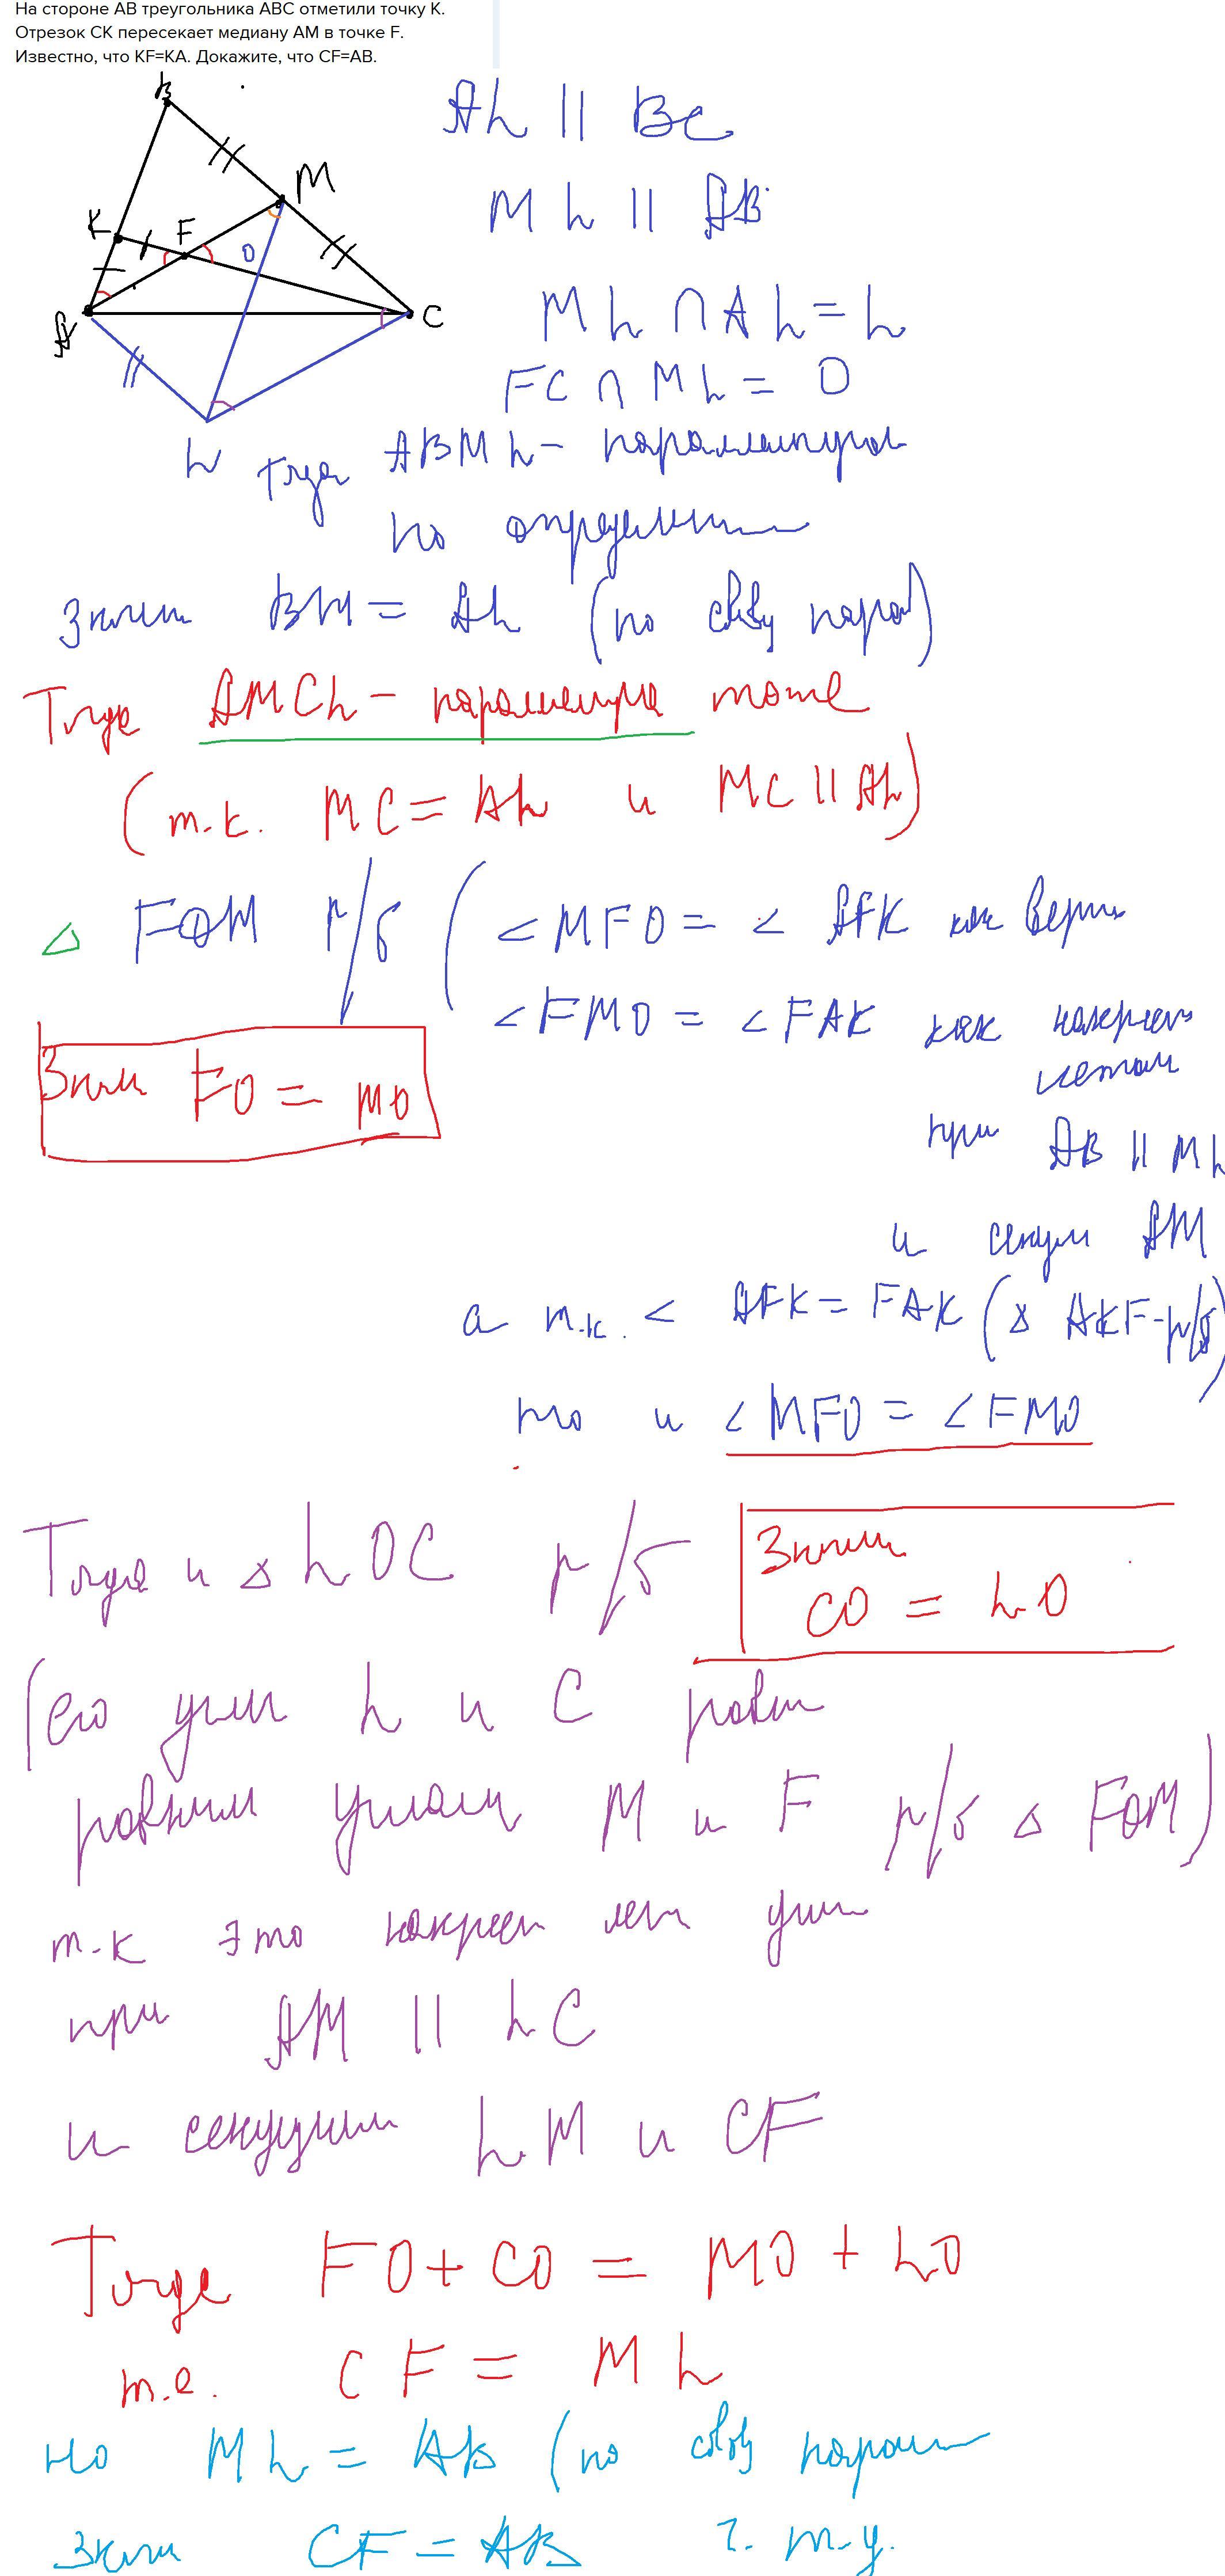 На стороне АВ треугольника АВС отметили точку К.
Отрезок СК пересекает медиану АМ в точке F.
Известно, что KF=KA. Докажите, что CF=AB.
B
M
K
F
O
A
C
L
AL || BC
ML || AB
ML ∩ AL = L
FC ∩ ML = O
Тогда ABML - параллелограм
по определению
Значит BM = AL (по св-ву парал)
Тогда AMCL - параллелограм тоже
(т.к. MC = AL и MC || AL)
△ FOM р/б (∠MFO = ∠AFK как верт
∠FMO = ∠FAK как накрест
лежащ
Значит FO = MO
при AB || ML
и секущ AM
а т.к. ∠AFK = FAK (△ AKF-р/б)
то и ∠MFO = ∠FMO
Тогда и △ LOC р/б
Значит
CO = LO
(его углы L и C равны
равным углам M и F р/б △ FOM)
т-к это накрест леж углы
при AM || LC
и секущими LM и CF
Тогда FO + CO = MO + LO
т.е. CF = ML
но ML = AB (по св-ву парал
Значит CF = AB ч. т-д.